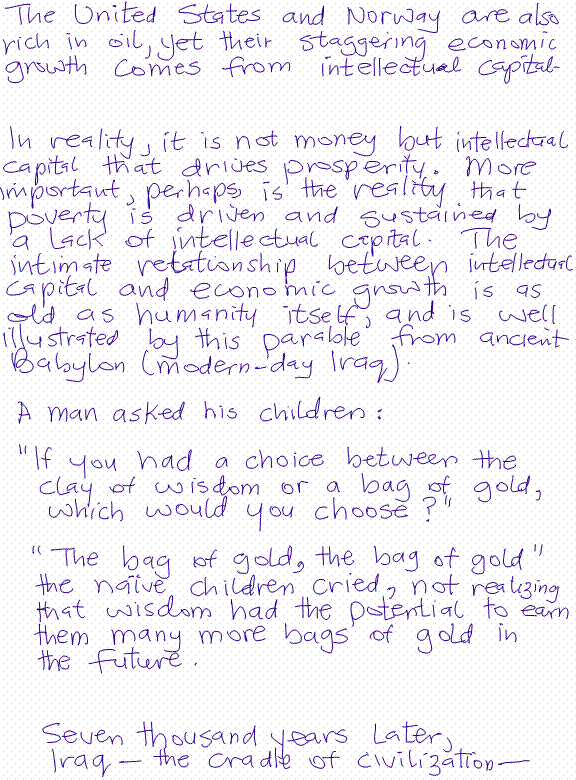 The United States and Norway are also
rich in oil, yet their staggering economic
growth comes from intellectual capital.
In reality, it is not money but intellectual
capital that drives prosperity. More
important, perhaps, is the reality that
poverty is driven and sustained by
a lack of intellectual capital. The
intimate relationship between intellectual
capital and economic growth is as
old as humanity itself, and is well
illustrated by this parable from ancient
Babylon (modern-day Iraq).
A man asked his children:
"If you had a choice between the
clay of wisdom or a bag of gold,
which would you choose?"
"The bag of gold, the bag of gold"
the naïve children cried, not realizing
that wisdom had the potential to earn
them many more bags of gold in
the future.
Seven thousand years later,
Iraq — the cradle of civilization —